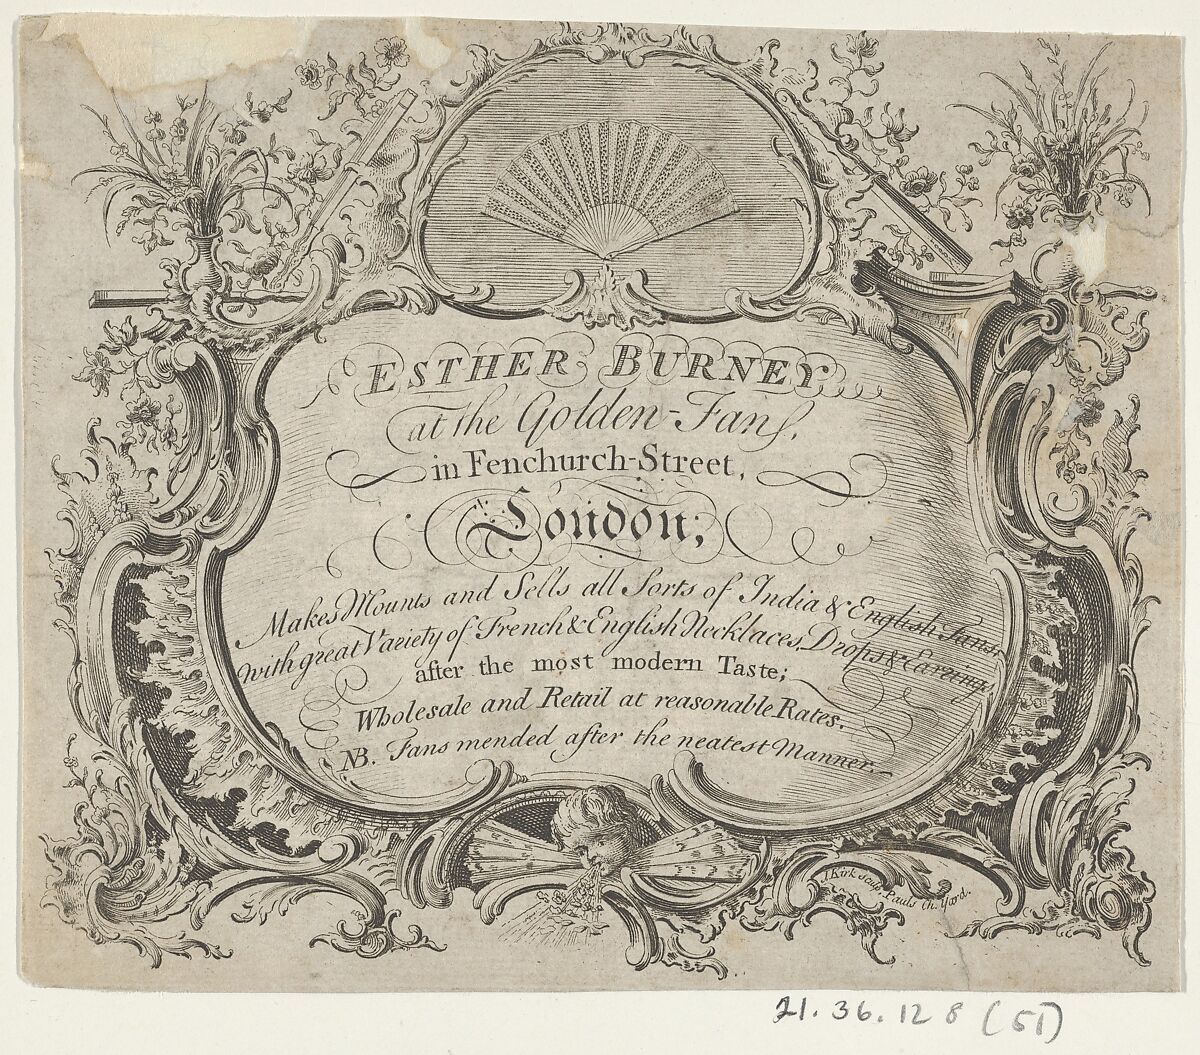 ESTHER BURNEY
at the Golden-Fans,
in Fenchurch-Street,
London;
Makes Mounts and Sells all Sorts of India & English Fans,
with great Variety of French & English Necklaces, Drops & Earrings
after the most modern Taste;
Wholesale and Retail at reasonable Rates.
NB. Fans mended after the neatest Manner.
J Kirk sculp Pauls Ch. Yard.
21. 36. 12 8 (51)